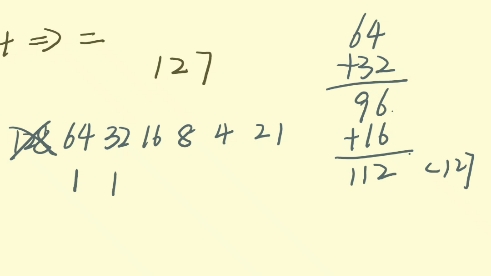 + ⇒ =
127
128 64 32 16 8 4 2 1
1 1
64
+32
96
+16
112 <127